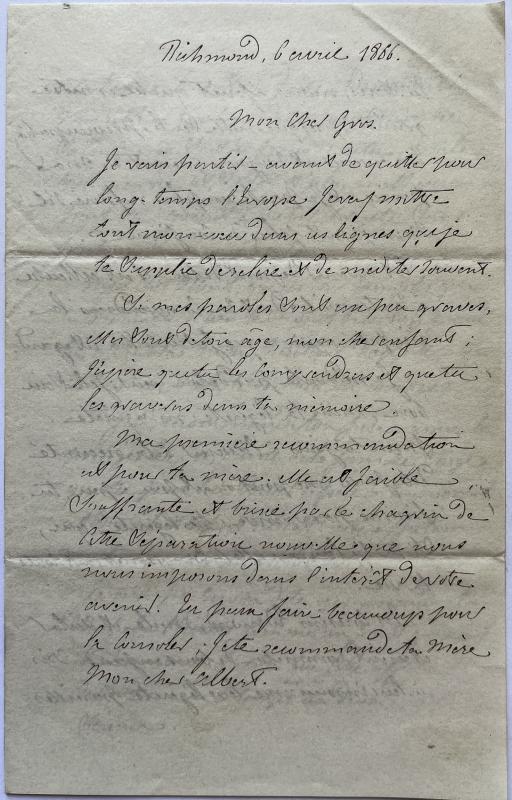 Richmond, 6 avril 1866.
Mon cher Gros.
Je vais partir - avant de quitter pour
long-temps l'Europe je veux mettre
tout mon cœur dans ces lignes que je
te supplie de relire et de méditer souvent.
Si mes paroles sont un peu graves,
elles sont de ton âge, mon cher enfant ;
j'espère que tu les comprendras et que tu
les graveras dans ta mémoire.
Ma première recommandation
est pour ta mère. Elle est faible
souffrante et brisée par le chagrin de
cette séparation nouvelle que nous
nous imposons dans l'intérêt de votre
avenir. Tu peux faire beaucoup pour
la consoler ; je te recommande ta mère
mon cher Albert.